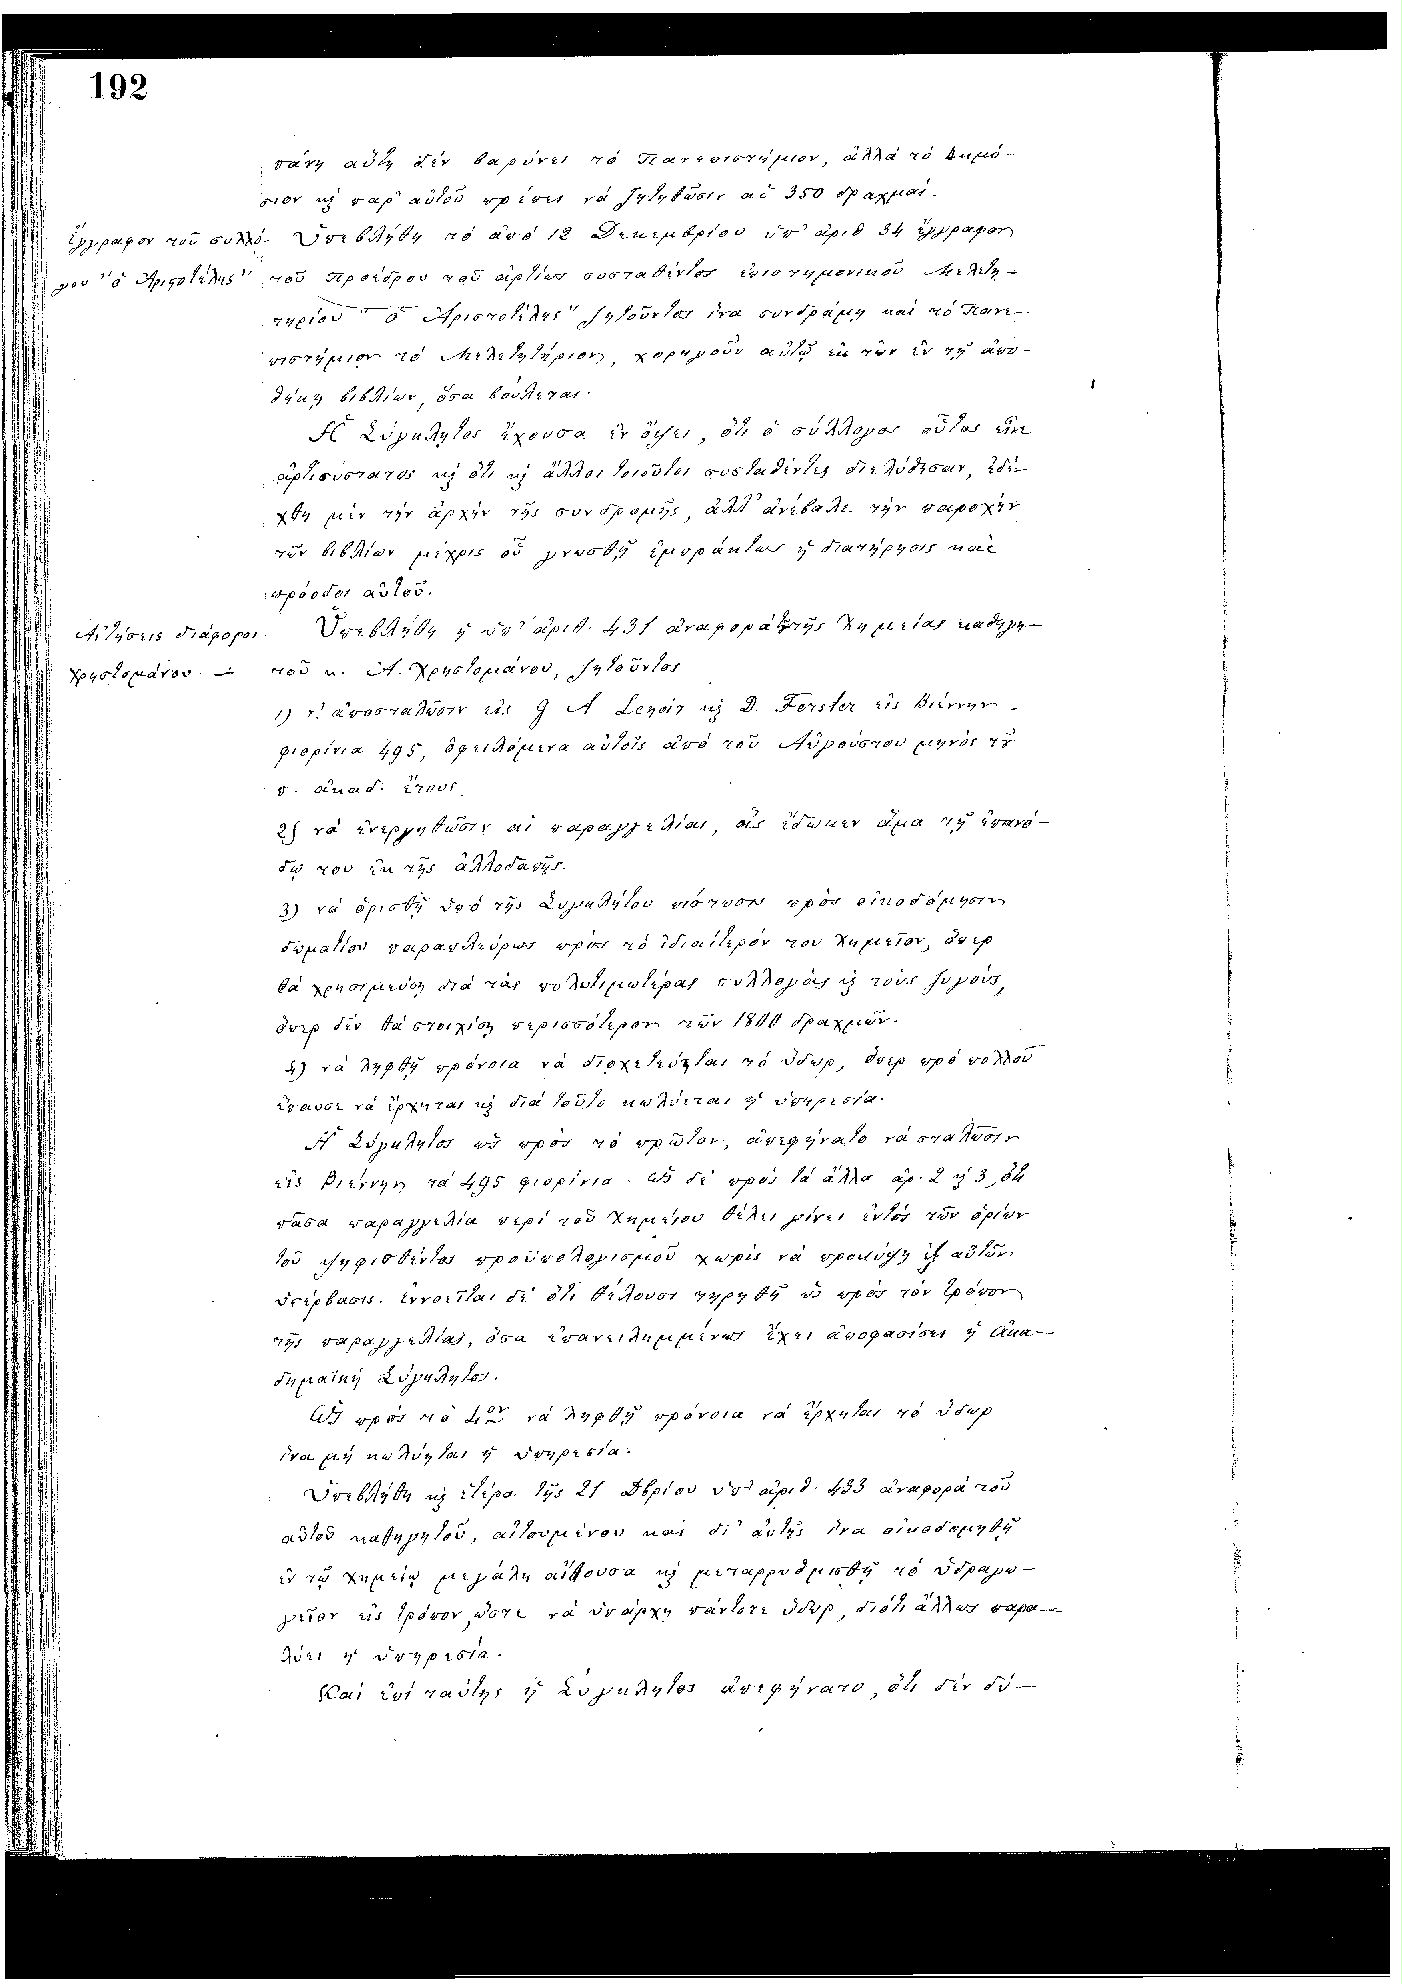 192
πάνη αὕτη δέν βαρύνει τό Πανεπιστήμιον, ἀλλά τό Δημό-
σιον κ̀ παρ' αὐτοῦ πρέπει νά ζητηθῶσιν αἱ 350 δραχμαί.
Ἔγγραφον τοῦ συλλό-
γου "ὁ Ἀριστοτέλης"
Ὑπεβλήθη τό ἀπό 12 Δεκεμβρίου ὑπ' ἀριθ 34 ἔγγραφον
τοῦ Προέδρου τοῦ ἀρτίως συσταθέντος ἐπιστημονικοῦ Μελετη-
τηρίου "ὁ Ἀριστοτέλης" ζητοῦντος ἵνα συνδράμῃ καί τό Πανε-
πιστήμιον τό Μελετητήριον, χορηγοῦν αὐτῷ ἐκ τῶν ἐν τῇ ἀπο-
θήκῃ βιβλίων, ὅσα βούλεται.
Ἡ Σύγκλητος ἔχουσα ἐν ὄψει, ὅτι ὁ σύλλογος οὗτος εἶνε
ἀρτισύστατος κ̀ ὅτι κ̀ ἄλλοι τοιοῦτοι συσταθέντες διελύθησαν, ἐδέ-
χθη μέν τήν ἀρχήν τῆς συνδρομῆς, ἀλλ' ἀνέβαλε τήν παροχήν
τῶν βιβλίων μέχρις οὗ γνωσθῇ ἐμπράκτως ἡ διατήρησις καί
πρόοδος αὐτοῦ.
Αἰτήσεις διάφοροι
Χρηστομάνου. —
Ὑπεβλήθη ἡ ὑπ' ἀριθ. 431 ἀναφορά τῆς Χημείας καθηγη-
τοῦ κ. Α. Χρηστομάνου, ζητοῦντος
1) ν' ἀποσταλῶσιν εἰς G A Lenoir κ̀ D. Ferster εἰς Βιέννην
φιορίνια 495, ὀφειλόμενα αὐτοῖς ἀπό τοῦ Αὐγούστου μηνός τοῦ
π. ἀκαδ. ἔτους
2) νά ἐνεργηθῶσιν αἱ παραγγελίαι, ἅς ἔδωκεν ἅμα τῇ ἐπανό-
δῳ του ἐκ τῆς ἀλλοδαπῆς.
3) νά ὁρισθῇ ὑπό τῆς Συγκλήτου πίστωσις πρός οἰκοδόμησιν
δωματίου παραπλεύρως πρός τό ἰδιαίτερόν του Χημεῖον, ὅπερ
θά χρησιμεύσῃ διά τάς πολυτιμωτέρας συλλογάς κ̀ τούς ζυγούς,
ὅπερ δέν θά στοιχίσῃ περισσότερον τῶν 1800 δραχμῶν.
4) νά ληφθῇ πρόνοια νά διοχετεύηται τό ὕδωρ, ὅπερ πρό πολλοῦ
ἔπαυσε νά ἔρχηται κ̀ διά τοῦτο κωλύεται ἡ ὑπηρεσία.
Ἡ Σύγκλητος ὡς πρός τό πρῶτον, ἀπεφήνατο νά σταλῶσιν
εἰς Βιέννην τά 495 φιορίνια. Ὡς δέ πρός τά ἄλλα ἀρ. 2 κ̀ 3, ὅτι
πᾶσα παραγγελία περί τοῦ Χημείου θέλει γίνει ἐντός τῶν ὁρίων
τοῦ ψηφισθέντος προϋπολογισμοῦ χωρίς νά προκύψῃ ἐξ αὐτῶν
ὑπέρβασις. ἐννοεῖται δέ ὅτι θέλουσι τηρηθῇ ὡς πρός τόν τρόπον
τῆς παραγγελίας, ὅσα ἐπανειλημμένως ἔχει ἀποφασίσει ἡ Ἀκα-
δημαϊκή Σύγκλητος.
Ὡς πρός τό 4ον νά ληφθῇ πρόνοια νά ἔρχηται τό ὕδωρ
ἵνα μή κωλύηται ἡ ὑπηρεσία.
Ὑπεβλήθη κ̀ ἑτέρα τῆς 21 Δβρίου ὑπ' ἀριθ. 433 ἀναφορά τοῦ
αὐτοῦ καθηγητοῦ, αἰτουμένου καί δι' αὐτῆς ἵνα οἰκοδομηθῇ
ἐν τῷ Χημείῳ μεγάλη αἴθουσα κ̀ μεταρρυθμισθῇ τό ὑδραγω-
γεῖον εἰς τρόπον, ὥστε νά ὑπάρχῃ πάντοτε ὕδωρ, διότι ἄλλως παρα-
λύει ἡ ὑπηρεσία.
Καί ἐπί ταύτης ἡ Σύγκλητος ἀπεφήνατο, ὅτι δέν δύ-